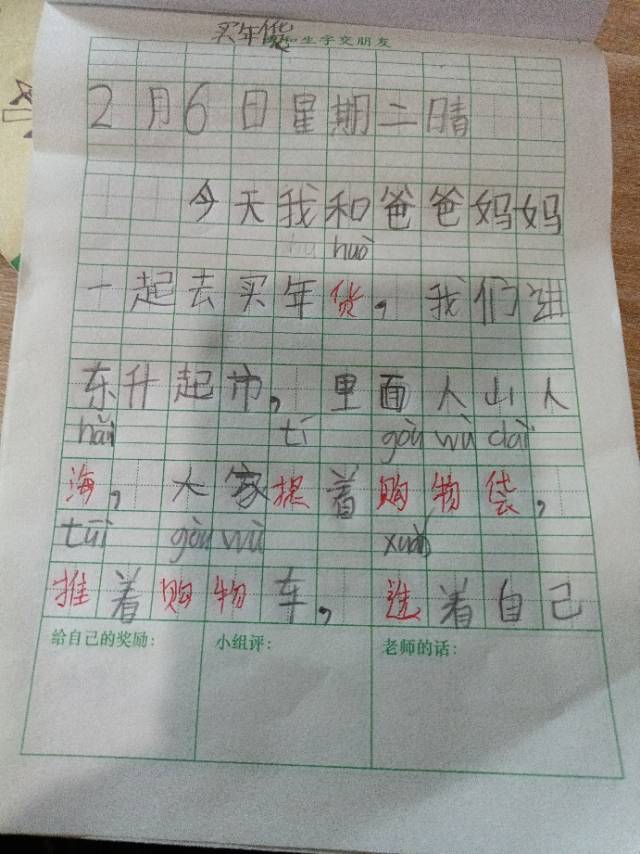 买年货
和生字交朋友
2月6日星期二晴
今天我和爸爸妈妈
huò
一起去买年货，我们进
东升起市，里面人山人
hǎi tí gòu wù dài
海，大家提着购物袋，
tuī gòu wù xuǎn
推着购物车，选着自己
给自己的奖励： 小组评： 老师的话：